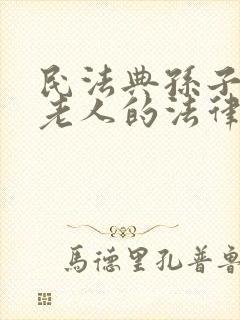 民法典孫子
老人的法律
馬德里孔普魯